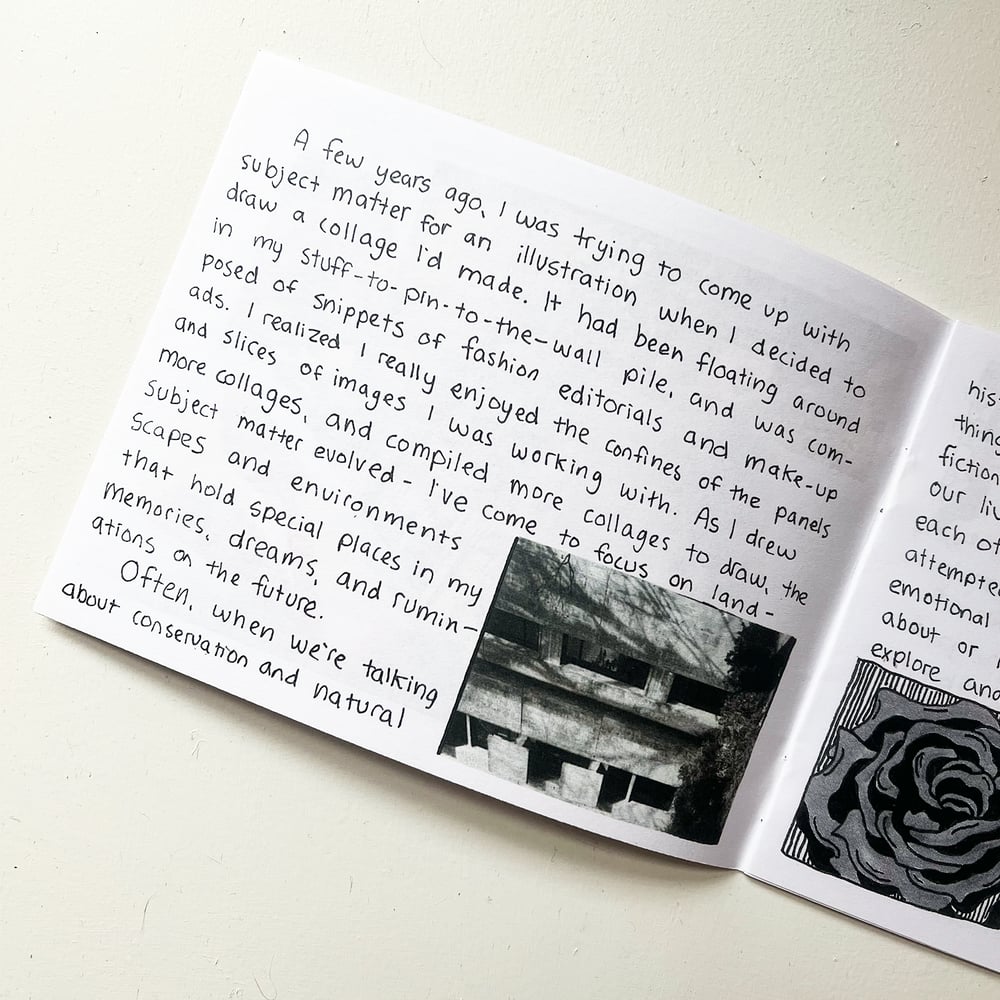 A few years ago, I was trying to come up with
subject matter for an illustration when I decided to
draw a collage I'd made. It had been floating around
in my stuff-to-pin-to-the-wall pile, and was com-
posed of snippets of fashion editorials and make-up
ads. I realized I really enjoyed the confines of the panels
and slices of images I was working with. As I drew
more collages, and compiled more collages to draw, the
subject matter evolved - I've come to focus on land-
scapes and environments
that hold special places in my
memories, dreams, and rumin-
ations on the future.
Often, when we're talking
about conservation and natural
his
thing
fiction
our li
each ot
attempte
emotional
about or
explore and